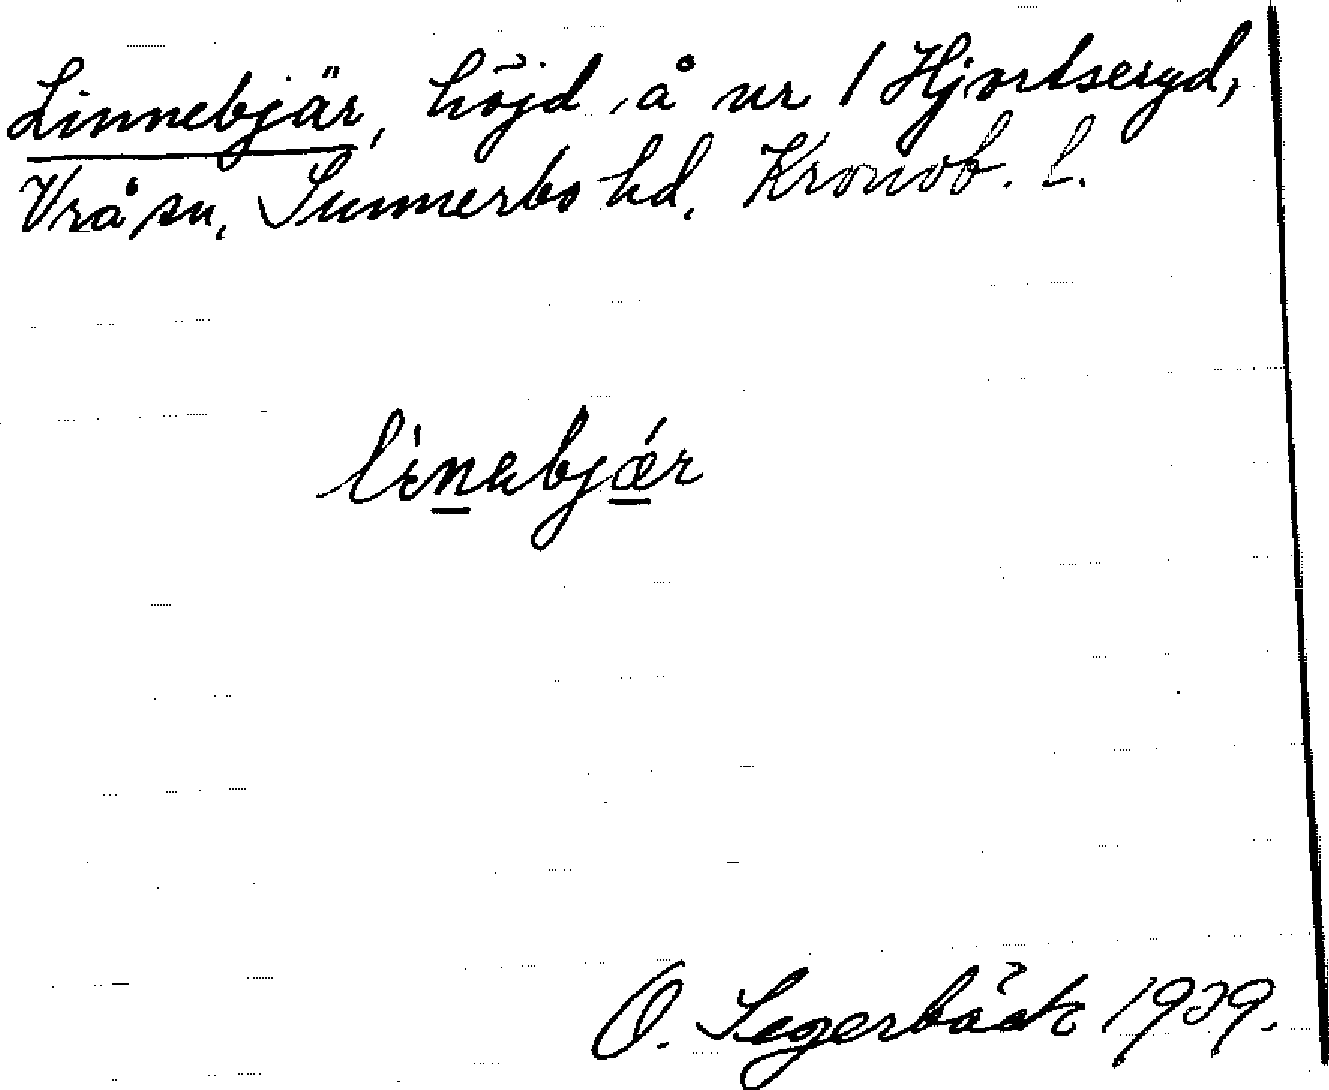 Linnebjär, höjd å nr 1 Hjortseryd,
Vrå sn, Sunnerbo hd, Kronob. l.
linabjǽr
O. Segerbäck 1929.